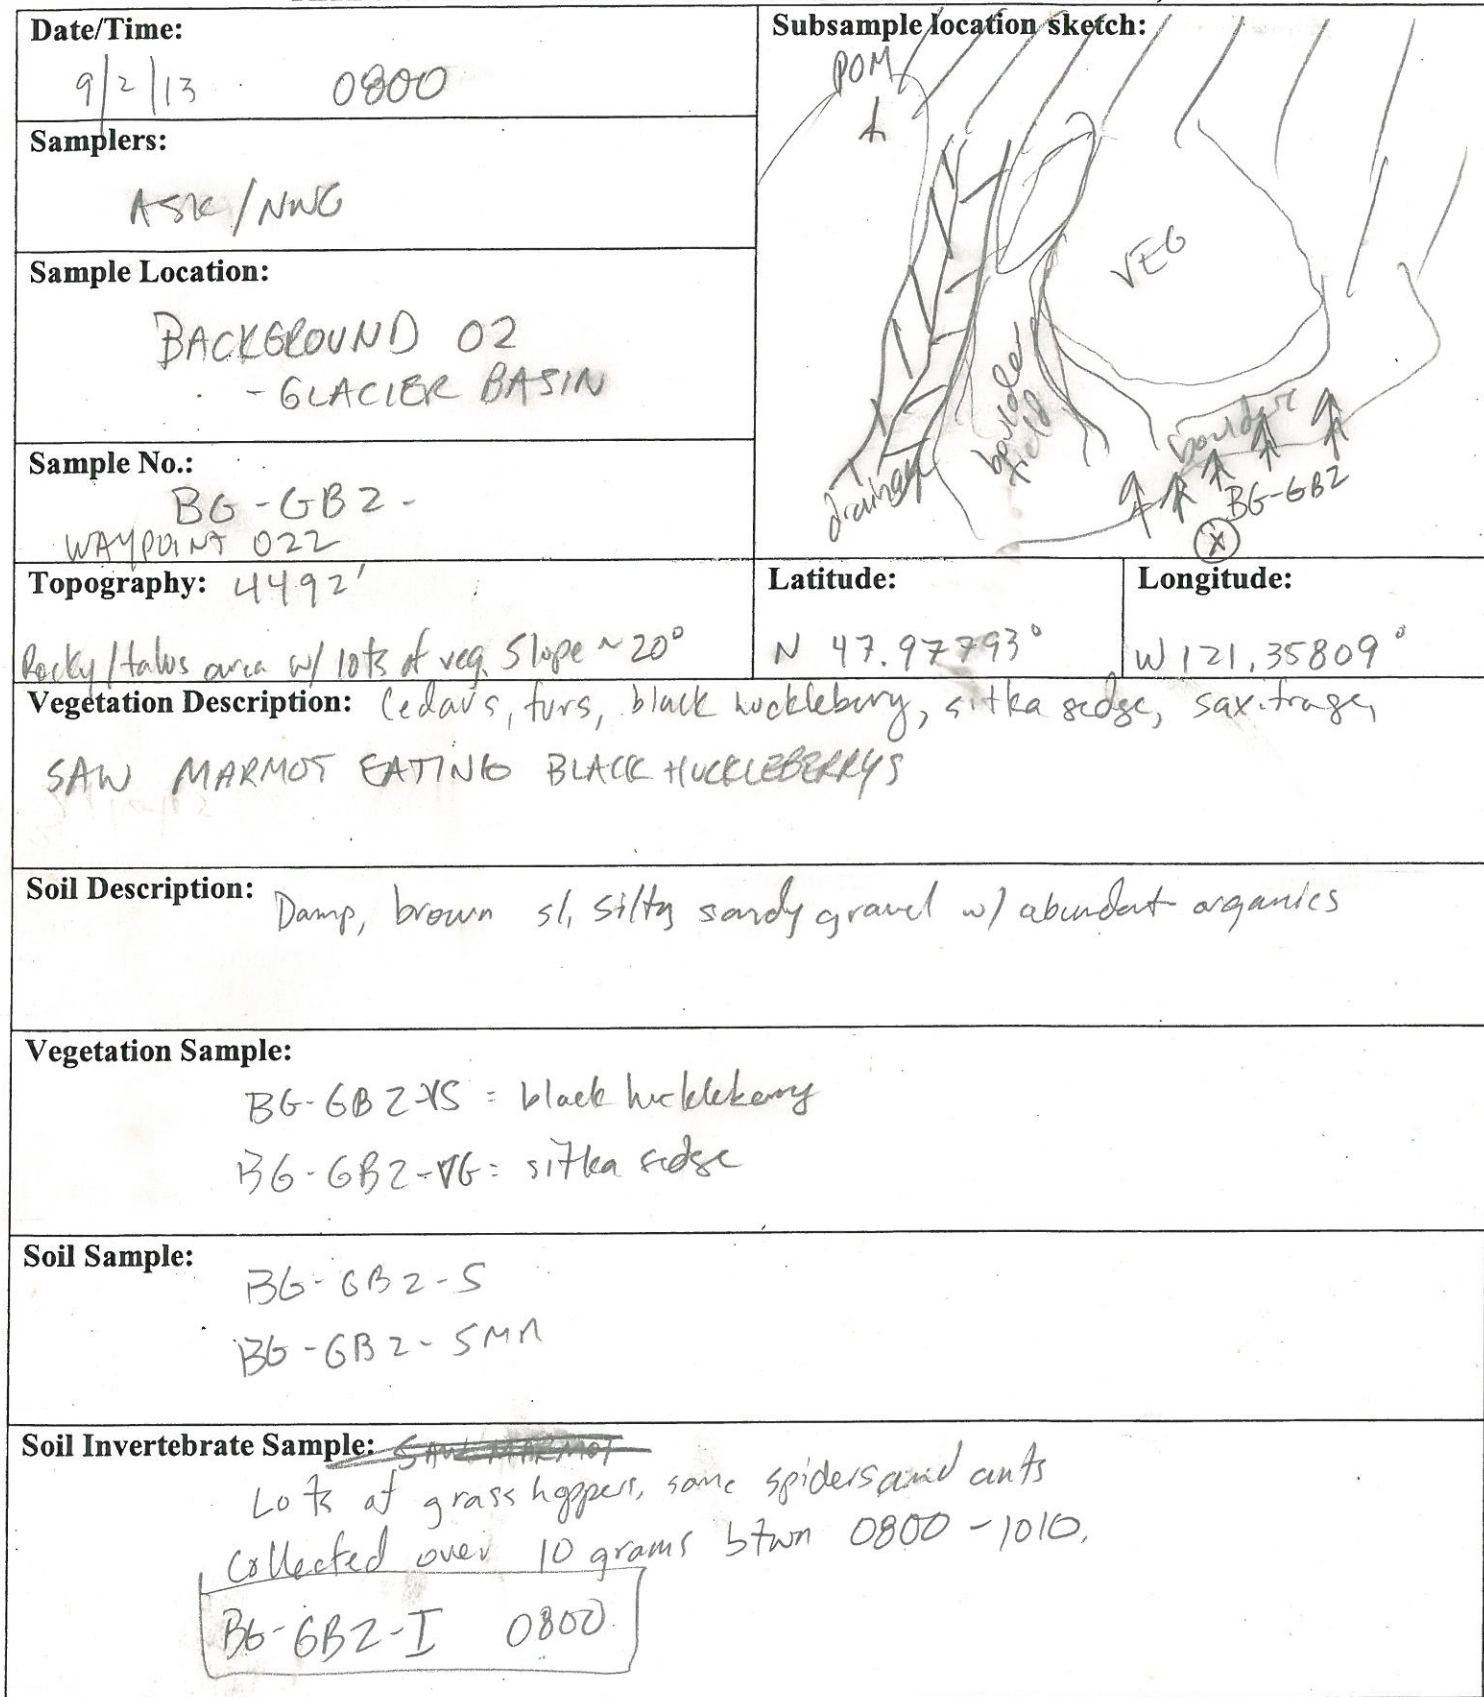 Date/Time:
9/2/13 0800
Samplers:
ASK/NWG
Sample Location:
BACKGROUND 02
- GLACIER BASIN
Sample No.:
BG-GB2-
WAYPOINT 022
Subsample location sketch:
POM
VEG
boulder
field
boulders
drainage
BG-GB2
X
Topography: 4492'
Rocky/talus area w/ lots of veg. Slope ~20°
Latitude:
N 47.97793°
Longitude:
W 121.35809°
Vegetation Description: Cedars, furs, black huckleberry, sitka sedge, saxifrage,
SAW MARMOT EATING BLACK HUCKLEBERRYS
Soil Description: Damp, brown sl. silty sandy gravel w/ abundant organics
Vegetation Sample:
BG-GB2-VS = black huckleberry
BG-GB2-VG = sitka sedge
Soil Sample:
BG-GB2-S
BG-GB2-SMM
Soil Invertebrate Sample: SAW MARMOT
Lots of grasshoppers, some spiders and ants
Collected over 10 grams btwn 0800-1010.
BG-GB2-I 0800